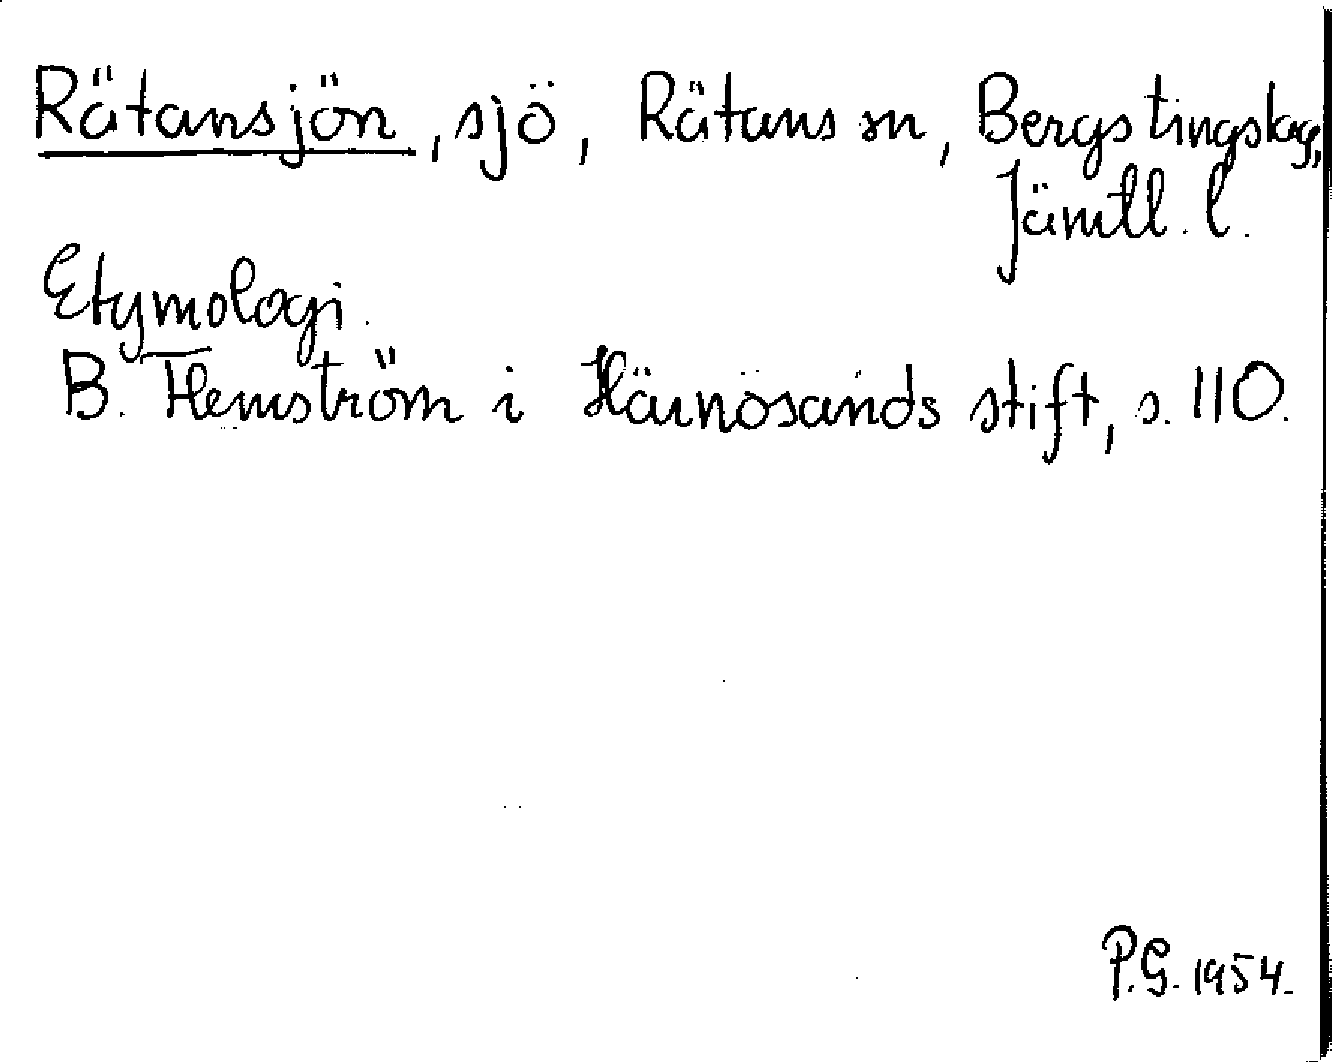 Rätansjön, sjö, Rätans sn, Bergs tingslag,
Jämtl. l.
Etymologi.
B. Hemström i Härnösands stift, s. 110.
P.G. 1954.